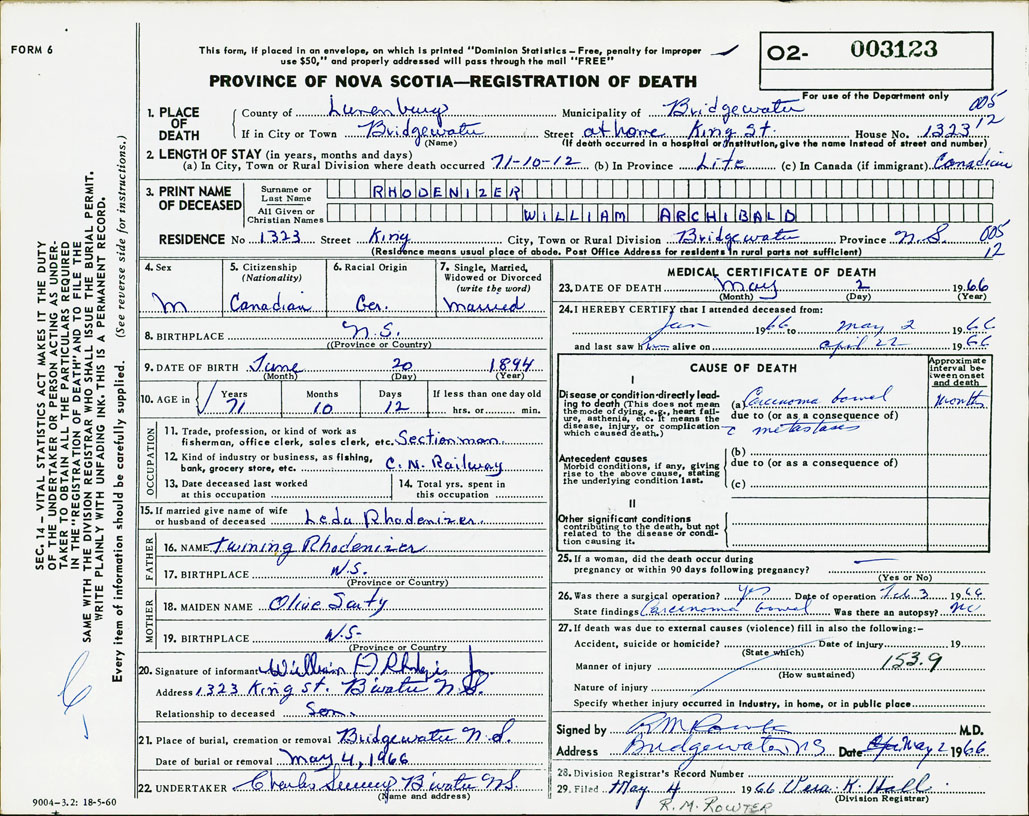 FORM 6
This form, if placed in an envelope, on which is printed "Dominion Statistics – Free, penalty for improper
use $50," and properly addressed will pass through the mail "FREE"
02- 003123
PROVINCE OF NOVA SCOTIA—REGISTRATION OF DEATH
For use of the Department only
005
12
1. PLACE OF DEATH
County of Lunenburg Municipality of Bridgewater
If in City or Town Bridgewater Street at home King St. House No. 1323
(Name) (If death occurred in a hospital or institution, give the name instead of street and number)
2. LENGTH OF STAY (in years, months and days)
(a) In City, Town or Rural Division where death occurred 71-10-12 (b) In Province Life (c) In Canada (if immigrant) Canadian
3. PRINT NAME OF DECEASED
Surname or Last Name RHODENIZER
All Given or Christian Names WILLIAM ARCHIBALD
RESIDENCE No 1323 Street King City, Town or Rural Division Bridgewater Province N.S. 005
(Residence means usual place of abode. Post Office Address for residents in rural parts not sufficient) 12
4. Sex M
5. Citizenship (Nationality) Canadian
6. Racial Origin Ger.
7. Single, Married, Widowed or Divorced (write the word) Married
8. BIRTHPLACE N.S.
((Province or Country)
9. DATE OF BIRTH June 20 1894
(Month) (Day) (Year)
10. AGE in Years Months Days If less than one day old
71 10 12 hrs. or min.
OCCUPATION
11. Trade, profession, or kind of work as
fisherman, office clerk, sales clerk, etc. Sectionman
12. Kind of industry or business, as fishing,
bank, grocery store, etc. C. N. Railway
13. Date deceased last worked
at this occupation
14. Total yrs. spent in
this occupation
15. If married give name of wife
or husband of deceased Leda Rhodenizer
FATHER
16. NAME Twining Rhodenizer
17. BIRTHPLACE N.S.
(Province or Country)
MOTHER
18. MAIDEN NAME Olive
19. BIRTHPLACE N.S.
(Province or Country)
20. Signature of informant William A
Address 1323 King St. B'water N.S.
Relationship to deceased Son.
21. Place of burial, cremation or removal Bridgewater N.S.
Date of burial or removal May 4, 1966
22. UNDERTAKER Charles B'water NS.
(Name and address)
9004-3.2: 18-5-60
MEDICAL CERTIFICATE OF DEATH
23. DATE OF DEATH May 2 1966
(Month) (Day) (Year)
24. I HEREBY CERTIFY that I attended deceased from:
Jan 1966 to May 2 1966
and last saw him alive on April 22 1966
CAUSE OF DEATH
Approximate interval between onset and death
I
Disease or condition directly leading to death (This does not mean the mode of dying, e.g., heart failure, asthenia, etc. It means the disease, injury, or complication which caused death.)
(a) Carcinoma bowel months
due to (or as a consequence of)
c metastases
Antecedent causes
Morbid conditions, if any, giving rise to the above cause, stating the underlying condition last.
(b)
due to (or as a consequence of)
(c)
II
Other significant conditions
contributing to the death, but not related to the disease or condition causing it.
25. If a woman, did the death occur during
pregnancy or within 90 days following pregnancy? —
(Yes or No)
26. Was there a surgical operation? Yes Date of operation Feb 3 1966
State findings Carcinoma bowel Was there an autopsy? No
27. If death was due to external causes (violence) fill in also the following:-
Accident, suicide or homicide? Date of injury 19
(State which)
Manner of injury 153.9
(How sustained)
Nature of injury
Specify whether injury occurred in industry, in home, or in public place
Signed by M.D.
Address Bridgewater NS Date May 2 1966
28. Division Registrar's Record Number
29. Filed May 4 1966 Vera K. Hall
(Division Registrar)
R. M. ROWTER
SEC. 14 – VITAL STATISTICS ACT MAKES IT THE DUTY
OF THE UNDERTAKER OR PERSON ACTING AS UNDER-
TAKER TO OBTAIN ALL THE PARTICULARS REQUIRED
IN THE "REGISTRATION OF DEATH" AND TO FILE THE
SAME WITH THE DIVISION REGISTRAR WHO SHALL ISSUE THE BURIAL PERMIT.
WRITE PLAINLY WITH UNFADING INK. THIS IS A PERMANENT RECORD.
Every item of information should be carefully supplied. (See reverse side for instructions.)